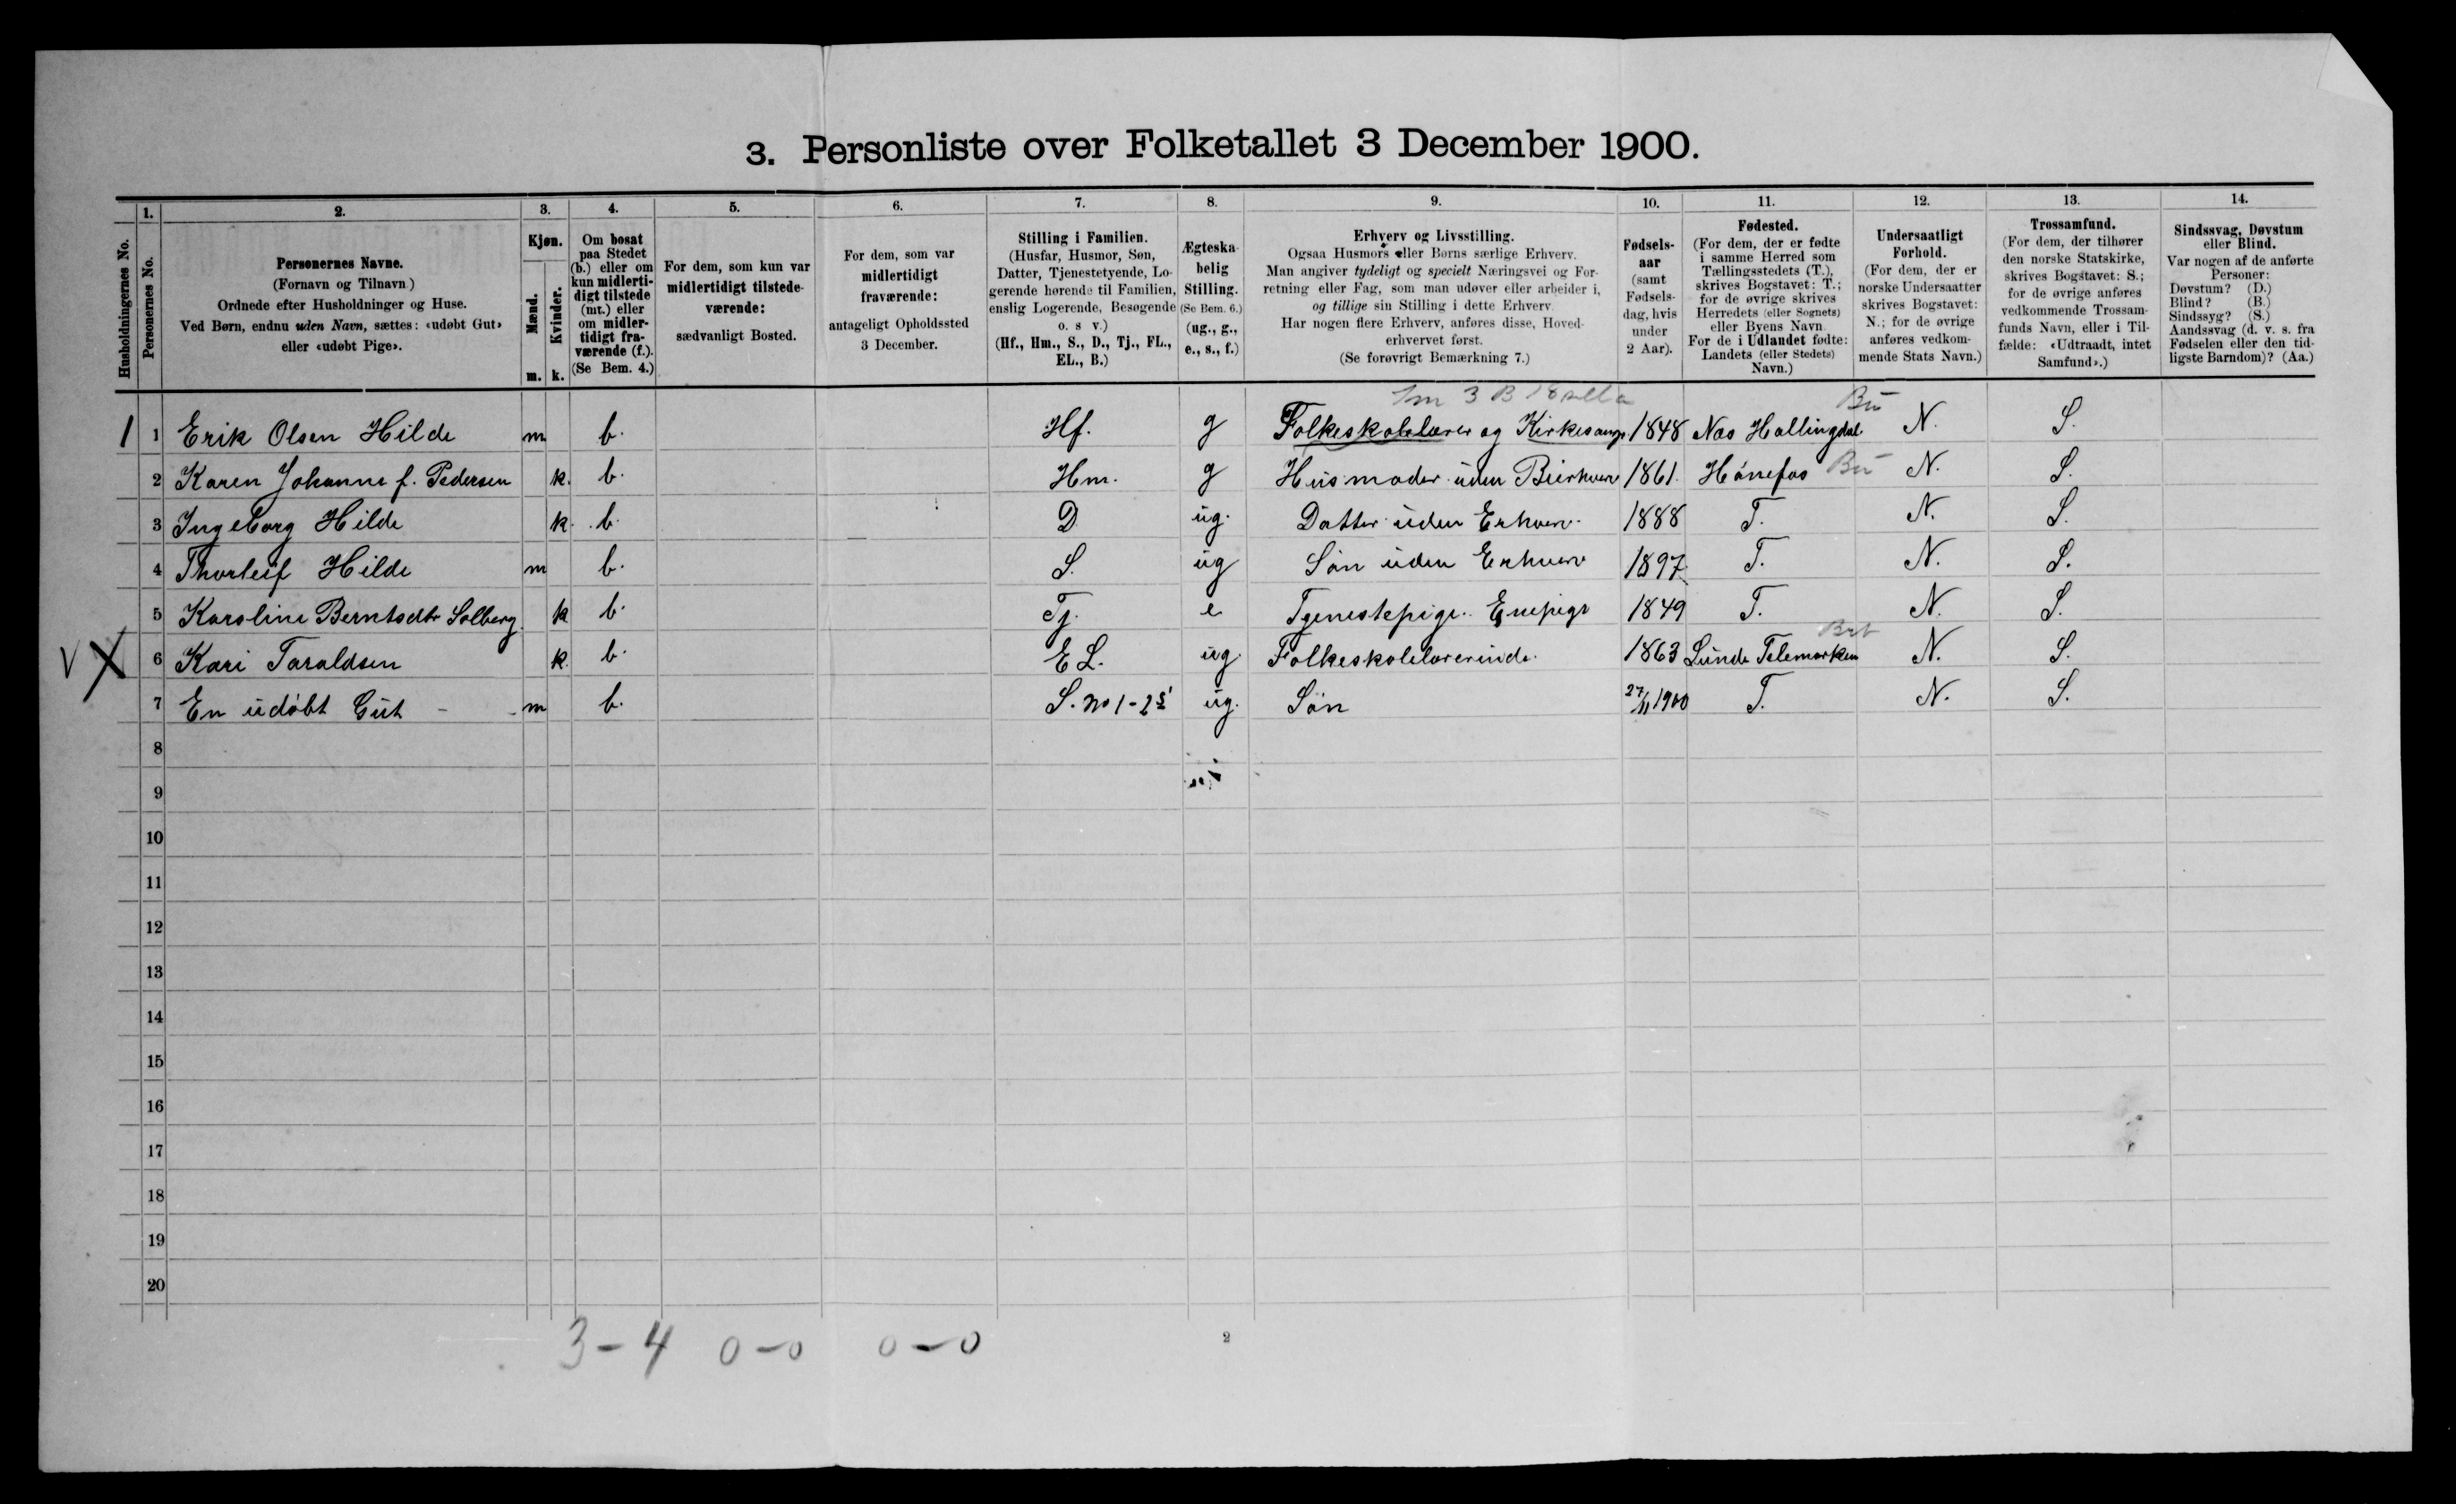 3. Personliste over Folketallet 3 December 1900.
1. 2. 3. 4. 5. 6. 7. 8. 9. 10. 11. 12. 13. 14.
Husholdningernes No.
Personernes No.
Personernes Navne.
(Fornavn og Tilnavn.)
Ordnede efter Husholdninger og Huse.
Ved Børn, endnu uden Navn, sættes: «udøbt Gut»
eller «udøbt Pige».
Kjøn.
Mænd.
Kvinder.
m. k.
Om bosat
paa Stedet
(b.) eller om
kun midlerti-
digt tilstede
(mt.) eller
om midler-
tidigt fra-
værende (f.).
(Se Bem. 4.)
For dem, som kun var
midlertidigt tilstede-
værende:
sædvanligt Bosted.
For dem, som var
midlertidigt
fraværende:
antageligt Opholdssted
3 December.
Stilling i Familien.
(Husfar, Husmor, Søn,
Datter, Tjenestetyende, Lo-
gerende hørende til Familien,
enslig Logerende, Besøgende
o. s v.)
(Hf., Hm., S., D., Tj., FL.,
EL., B.)
Ægteska-
belig
Stilling.
(Se Bem. 6.)
(ug., g.,
e., s., f.)
Erhverv og Livsstilling.
Ogsaa Husmors eller Børns særlige Erhverv.
Man angiver tydeligt og specielt Næringsvei og For-
retning eller Fag, som man udøver eller arbeider i,
og tillige sin Stilling i dette Erhverv.
Har nogen flere Erhverv, anføres disse, Hoved-
erhvervet først.
(Se forøvrigt Bemærkning 7.)
Fødsels-
aar
(samt
Fødsels-
dag, hvis
under
2 Aar).
Fødested.
(For dem, der er fødte
i samme Herred som
Tællingsstedets (T.),
skrives Bogstavet: T.;
for de øvrige skrives
Herredets (eller Sognets)
eller Byens Navn.
For de i Udlandet fødte:
Landets (eller Stedets)
Navn.)
Undersaatligt
Forhold.
(For dem, der er
norske Undersaatter
skrives Bogstavet:
N.; for de øvrige
anføres vedkom-
mende Stats Navn.)
Trossamfund.
(For dem, der tilhører
den norske Statskirke,
skrives Bogstavet: S.;
for de øvrige anføres
vedkommende Trossam-
funds Navn, eller i Til-
fælde: «Udtraadt, intet
Samfund».)
Sindssvag, Døvstum
eller Blind.
Var nogen af de anførte
Personer:
Døvstum? (D.)
Blind? (B.)
Sindssyg? (S.)
Aandssvag (d. v. s. fra
Fødselen eller den tid-
ligste Barndom)? (Aa.)
3 B Bu
1 1 Erik Olsen Hilde m b. Hf. g Folkeskolelærer og Kirkesanger 1848 Næs Hallingdal N. S.
2 Karen Johanne f. Pedersen k. b. Hm. g Husmoder uden Bierhverv 1861. Hönefos Bu N. S.
3 Ingeborg Hilde k. b. D ug. Datter uden Erhverv. 1888 T. N. S.
4 Thorleif Hilde m b. S. ug Sön uden Erhverv 1897. T. N. S.
5 Karoline Berntsdtr Solberg. k b. Tj. e Tjenestepige. Enepige 1849 T. N. S.
V X 6 Kari Taraldsen k. b. E L. ug. Folkeskolelærerinde. 1863 Lunde Telemarken N. S.
7 En udöbt Gut - m b. S. no 1-2 ug. Sön 27/11 1900 T. N. S.
8
9
10
11
12
13
14
15
16
17
18
19
20
3-4 0-0 0-0
2